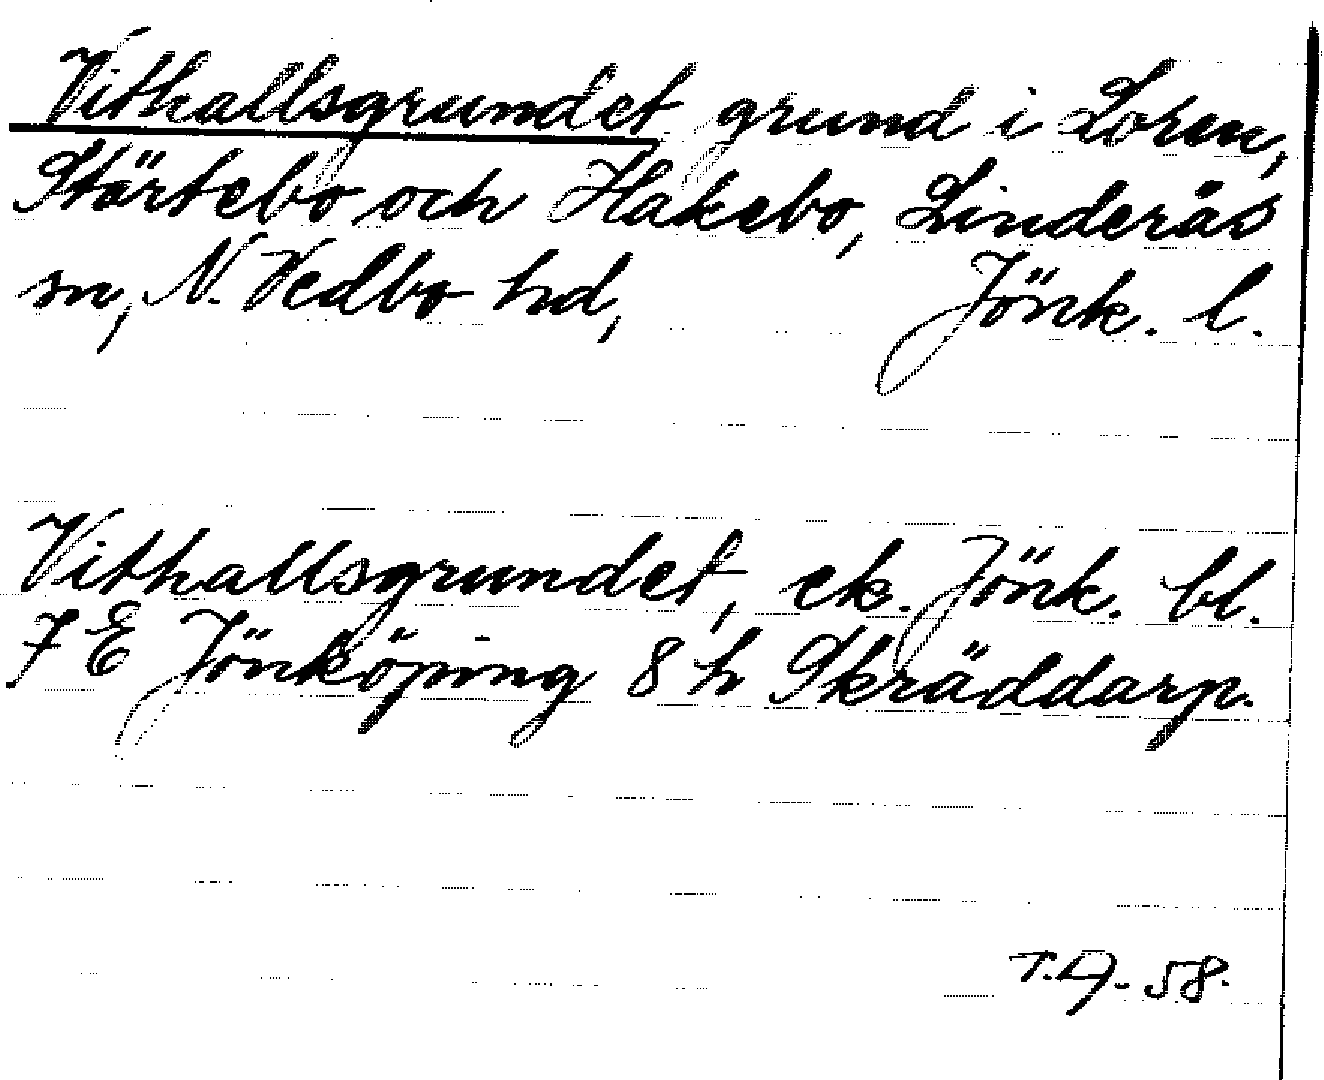 Vithallsgrundet, grund i Loren,
Störtebo och Hakebo, Linderås
sn, N. Vedbo hd, Jönk. l.
Vithallsgrundet, ek. Jönk. bl.
7 E Jönköping 8 h Skräddarp.
58.